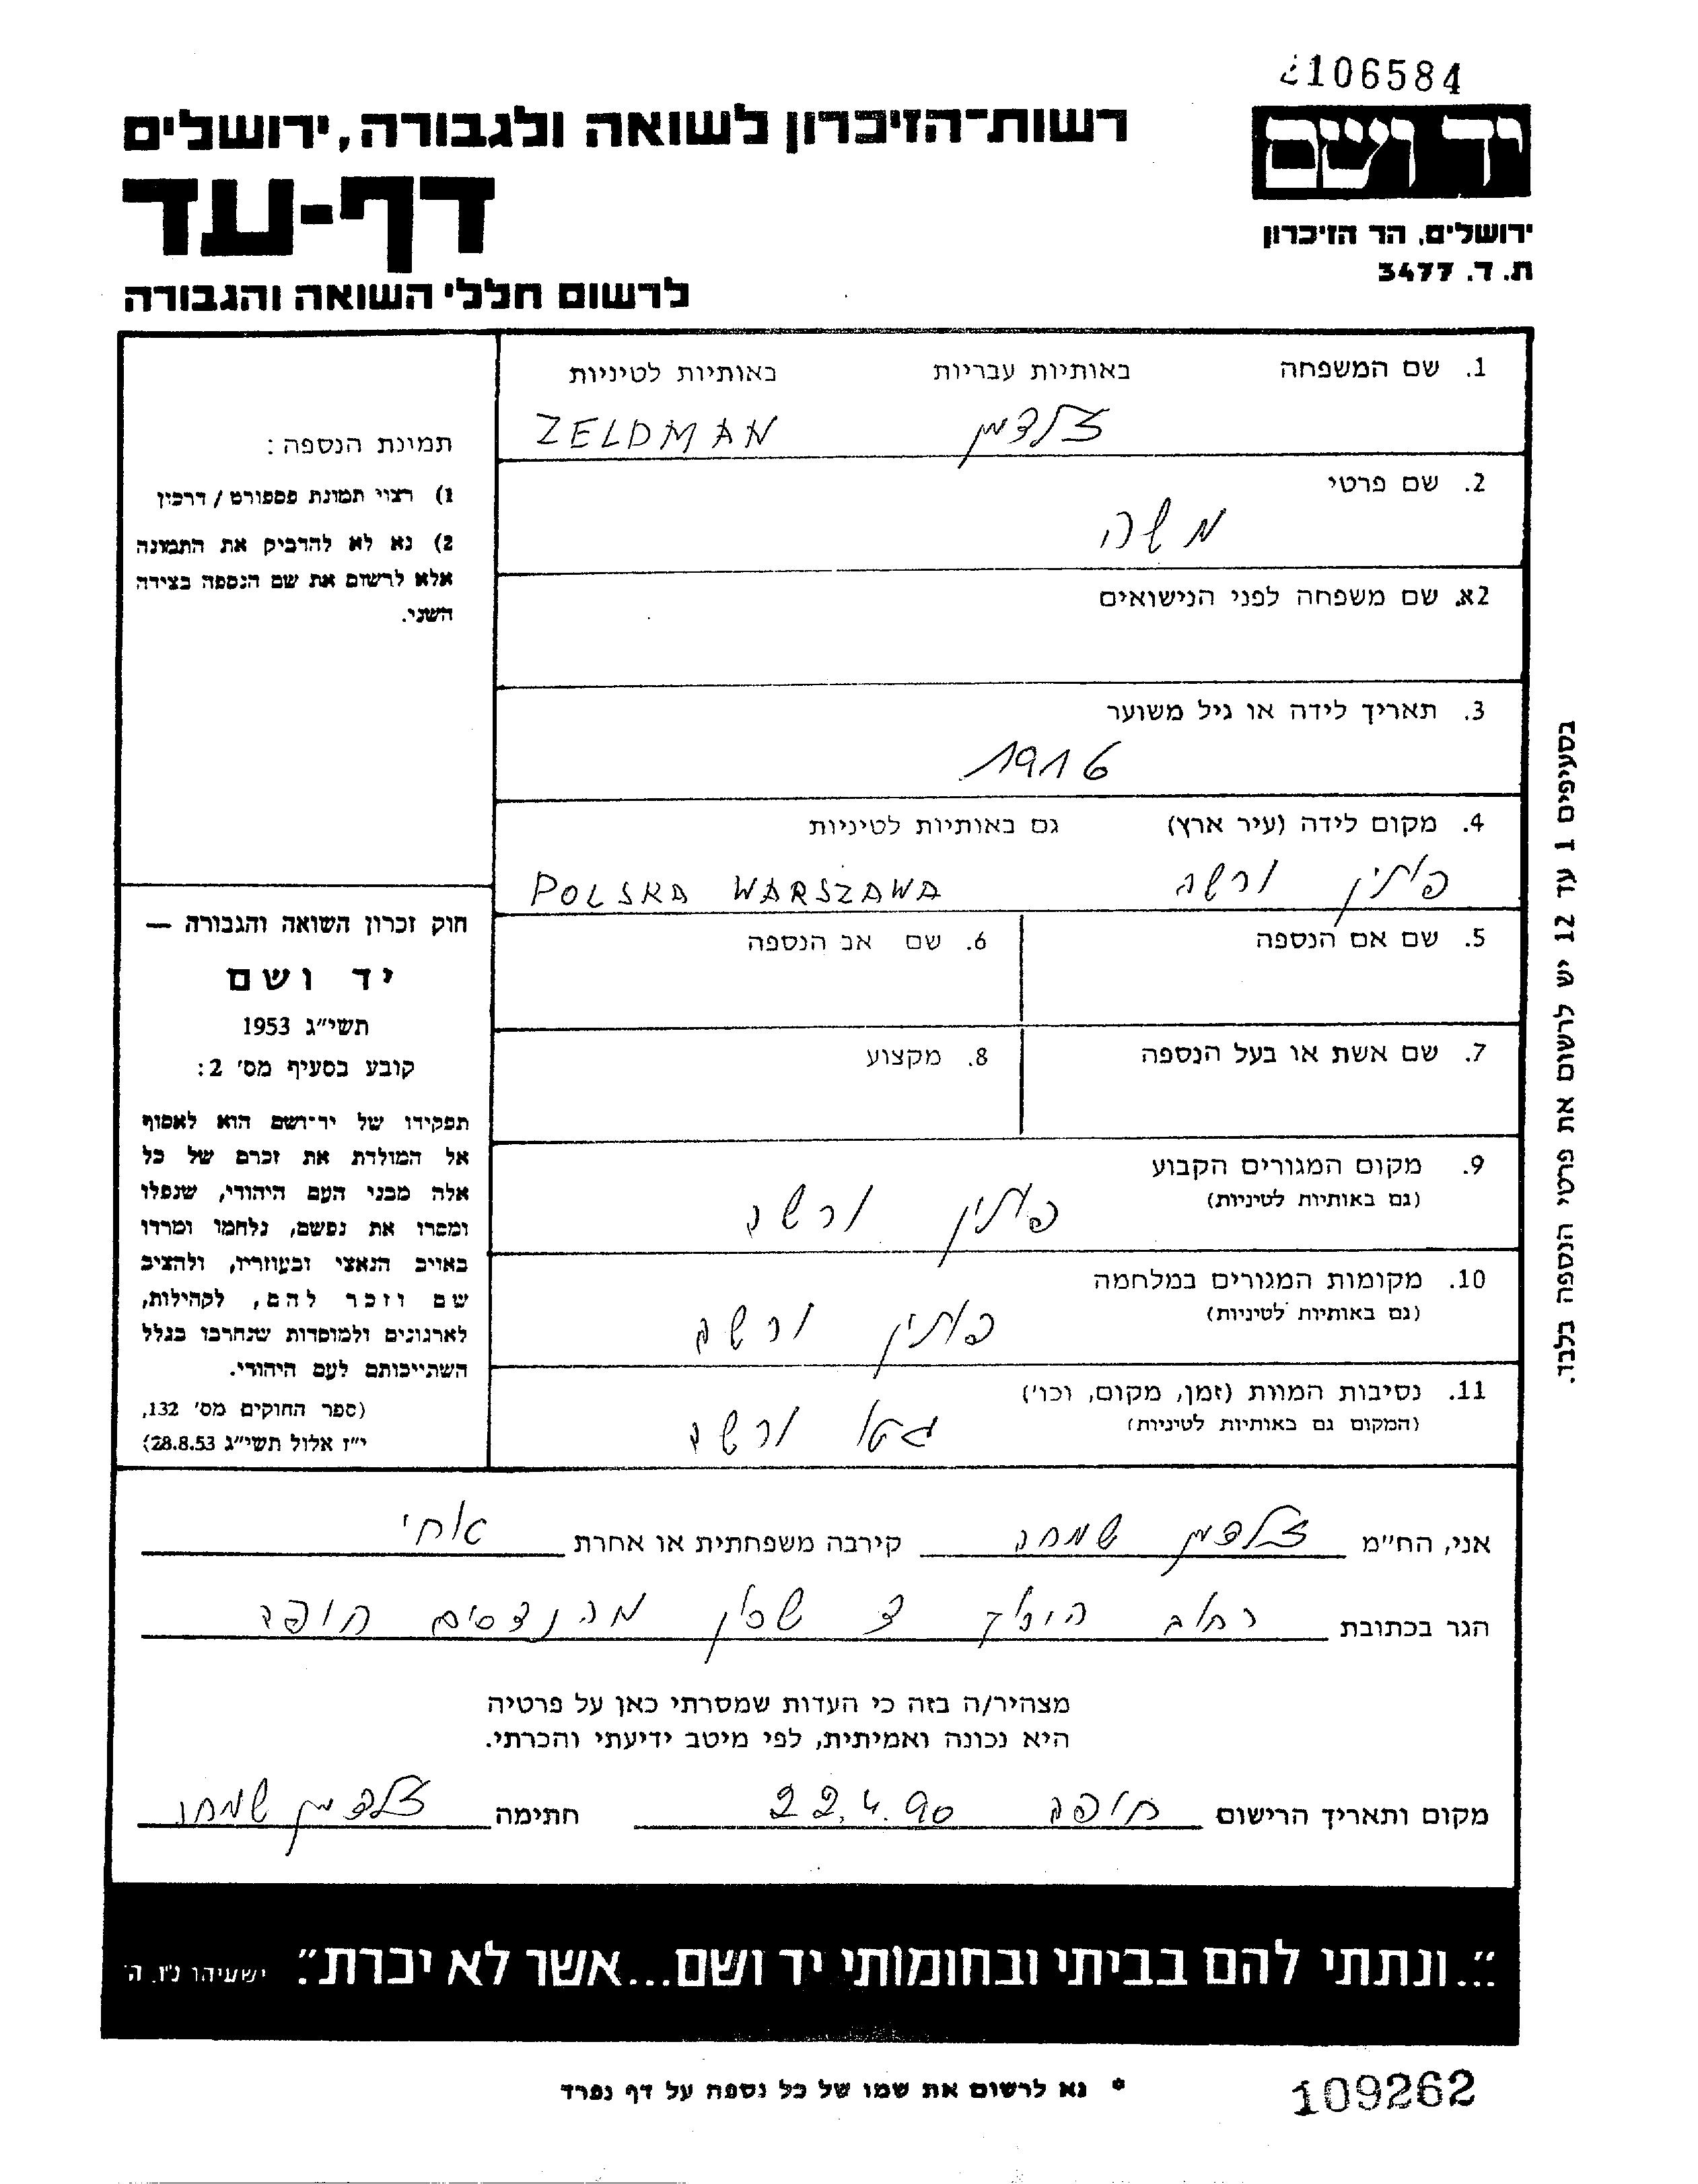 2106584
רשות-הזיכרון לשואה ולגבורה, ירושלים
יד ושם
דף-עד
ירושלים, הר הזיכרון
ת. ד. 3477
לרשום חללי השואה והגבורה
1. שם המשפחה באותיות עבריות באותיות לטיניות
זלדמן ZELDMAN
2. שם פרטי
משה
2א. שם משפחה לפני הנישואים
3. תאריך לידה או גיל משוער
1916
4. מקום לידה (עיר ארץ) גם באותיות לטיניות
פולין ורשה POLSKA WARSZAWA
5. שם אם הנספה 6. שם אב הנספה
7. שם אשת או בעל הנספה 8. מקצוע
9. מקום המגורים הקבוע
(גם באותיות לטיניות)
פולין ורשה
10. מקומות המגורים במלחמה
(גם באותיות לטיניות)
פולין ורשה
11. נסיבות המוות (זמן, מקום, וכו')
(המקום גם באותיות לטיניות)
גטו ורשה
תמונת הנספה:
1) רצוי תמונת פספורט / דרכון
2) נא לא להדביק את התמונה
אלא לרשום את שם הנספה בצידה
השני.
חוק זכרון השואה והגבורה —
יד ושם
תשי"ג 1953
קובע בסעיף מס' 2:
תפקידו של יד-ושם הוא לאסוף
אל המולדת את זכרם של כל
אלה מבני העם היהודי, שנפלו
ומסרו את נפשם, נלחמו ומרדו
באויב הנאצי ובעוזריו, ולהציב
שם וזכר להם, לקהילות,
לארגונים ולמוסדות שנחרבו בגלל
השתייכותם לעם היהודי.
(ספר החוקים מס' 132,
י"ז אלול תשי"ג 28.8.53)
בסעיפים 1 עד 12 יש לרשום את פרטי הנספה בלבד.
אני, הח"מ זלדמן שמחה קירבה משפחתית או אחרת אחי
הגר בכתובת רחוב שכון מהנדסים חיפה
מצהיר/ה בזה כי העדות שמסרתי כאן על פרטיה
היא נכונה ואמיתית, לפי מיטב ידיעתי והכרתי.
מקום ותאריך הרישום חיפה 22.4.90 חתימה זלדמן שמחה
"...ונתתי להם בביתי ובחומותי יד ושם...אשר לא יכרת". ישעיהו נ"ו. ה.
* נא לרשום את שמו של כל נספה על דף נפרד
109262